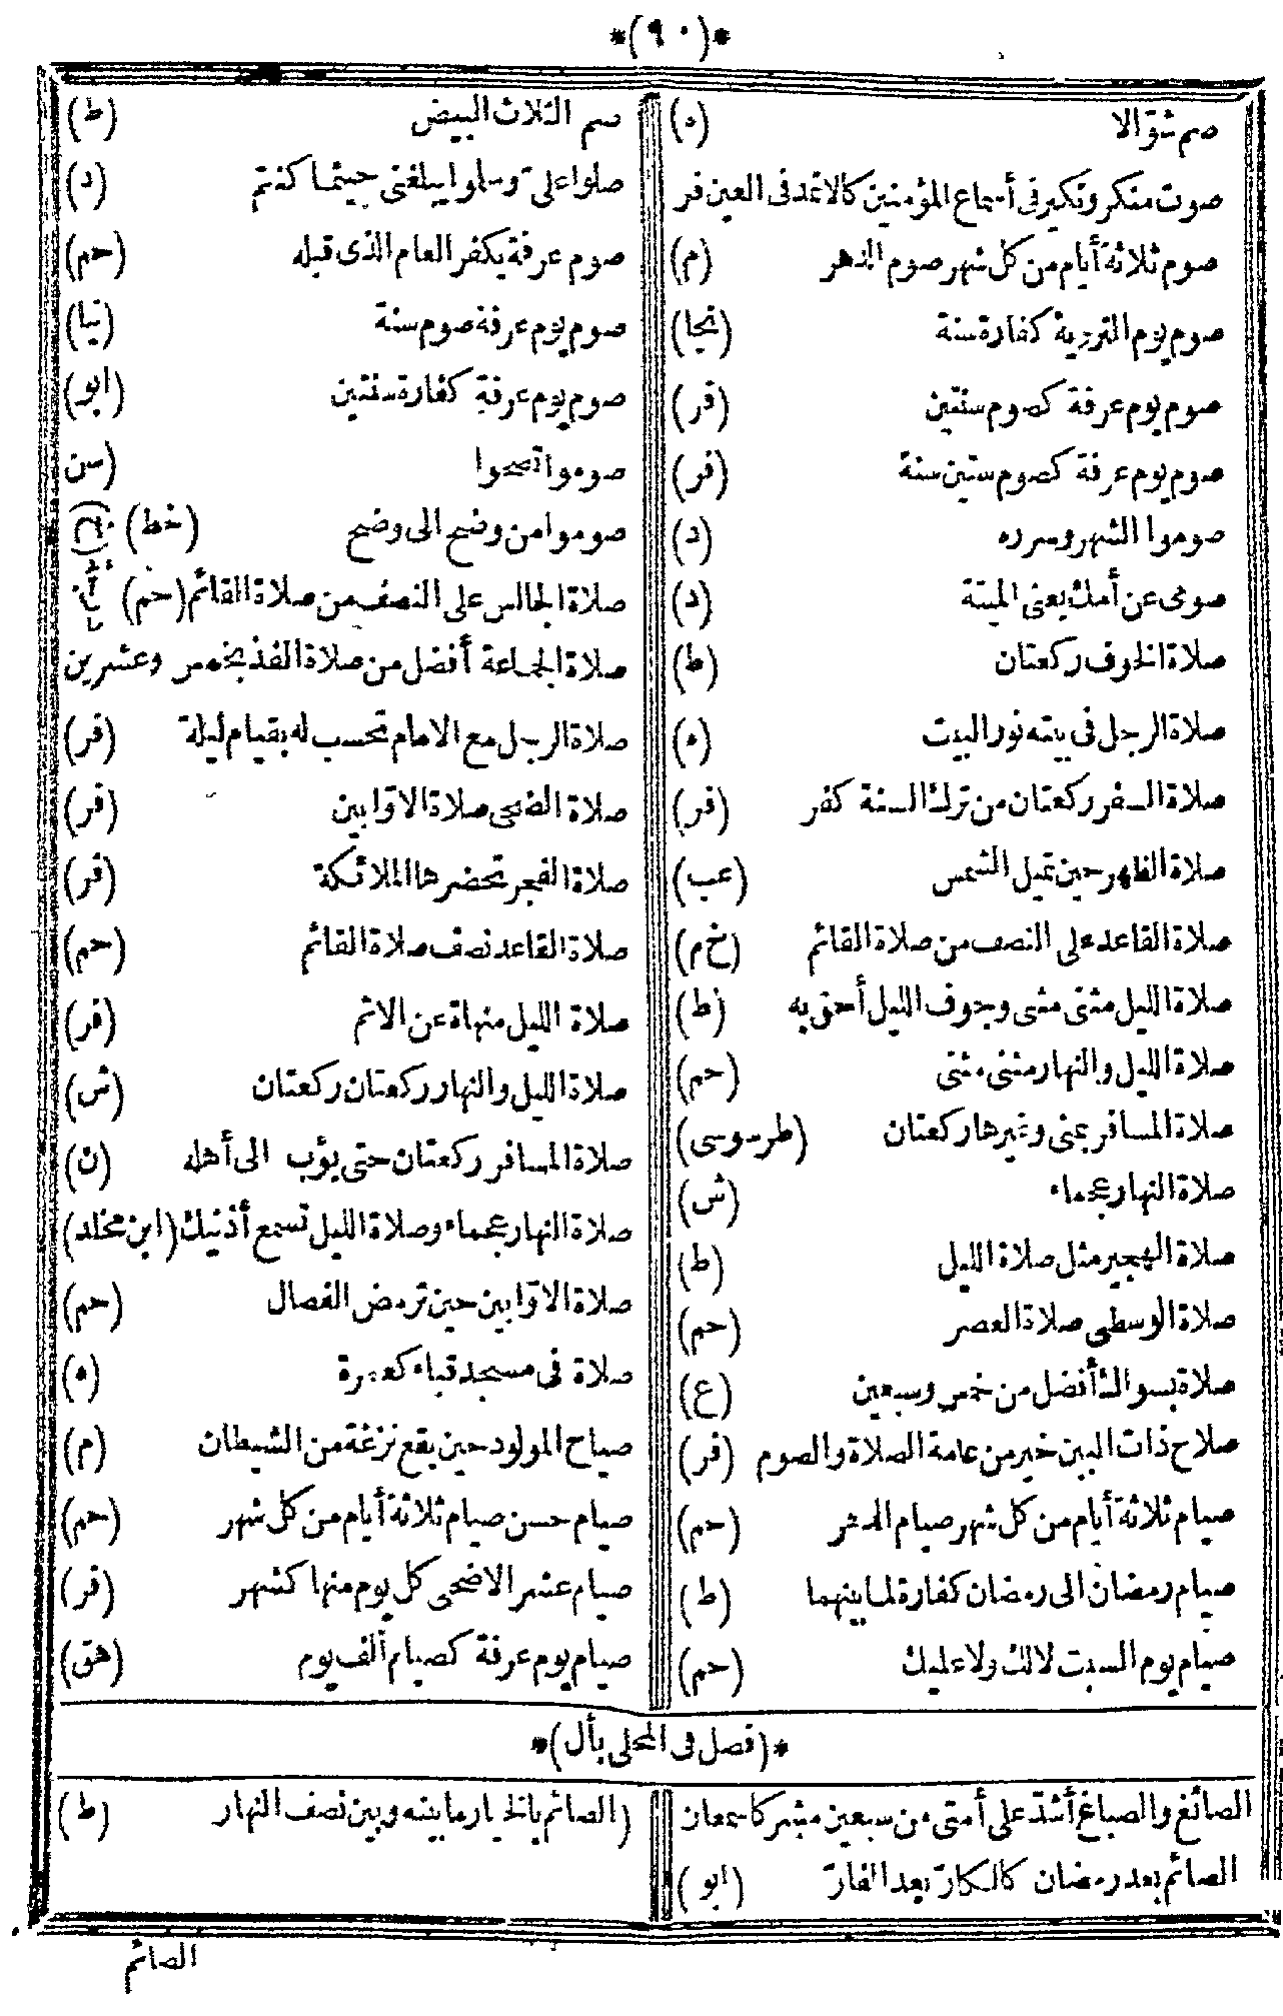 *(٩٠)*
صم شوّالا (ه)
صوت منكر ونكير فى أسماع المؤمنين كالاثمد فى العين فر
صوم ثلاثة أيام من كل شهر صوم الدهر (م)
صوم يوم التروية كفارة سنة (نجا)
صوم يوم عرفة كصوم سنتين (فر)
صوم يوم عرفة كصوم ستين سنة (فر)
صوموا الشهر وسرره (د)
صومى عن أمك يعنى الميتة (د)
صلاة الخوف ركعتان (ط)
صلاة الرجل فى بيته نور البيت (ه)
صلاة السفر ركعتان من ترك السنة كفر (فر)
صلاة الظهر حين تميل الشمس (عب)
صلاة القاعد على النصف من صلاة القائم (خ م)
صلاة الليل مثنى مثنى وجوف الليل أحق به (ط)
صلاة الليل والنهار مثنى مثنى (حم)
صلاة المسافر بمنى وغيرها ركعتان (طرسوسى)
صلاة النهار عجماء (ش)
صلاة الهجير مثل صلاة الليل (ط)
صلاة الوسطى صلاة العصر (حم)
صلاة بسواك أفضل من خمس وسبعين (ع)
صلاح ذات البين خير من عامة الصلاة والصوم (فر)
صيام ثلاثة أيام من كل شهر صيام الدهر (حم)
صيام رمضان الى رمضان كفارة لما بينهما (ط)
صيام يوم السبت لا لك ولا عليك (حم)
صم الثلاث البيض (ط)
صلوا على وسلوا يبلغنى حيثما كنتم (د)
صوم عرفة يكفر العام الذى قبله (حم)
صوم يوم عرفة صوم سنة (نيا)
صوم يوم عرفة كفارة سنتين (ابو)
صوموا تصحوا (سن
صوموا من وضح الى وضح (خط)
صلاة الجالس على النصف من صلاة القائم (حم)
صلاة الجماعة أفضل من صلاة الفذ بخمس وعشرين
صلاة الرجل مع الامام تحسب له بقيام ليلة (فر)
صلاة الضحى صلاة الاوّابين (فر)
صلاة الفجر تحضرها الملائكة (فر)
صلاة القاعد نصف صلاة القائم (حم)
صلاة الليل منهاة عن الاثم (فر)
صلاة الليل والنهار ركعتان ركعتان (ش)
صلاة المسافر ركعتان حتى يؤب الى أهله (ن)
صلاة النهار عجماء وصلاة الليل تسمع أذنيك (ابن مخلد)
صلاة الاوّابين حين ترمض الفصال (حم)
صلاة فى مسجد قباء كعمرة (ه)
صياح المولود حين يقع نزغة من الشيطان (م)
صيام حسن صيام ثلاثة أيام من كل شهر (حم)
صيام عشر الاضحى كل يوم منها كشهر (فر)
صيام يوم عرفة كصيام ألف يوم (هق)
*(فصل فى المحلى بأل)*
الصائغ والصباغ أشدّ على أمتى من سبعين مشركا سمعان
الصائم بعد رمضان كالكارّ بعد الفارّ (ابو)
(الصائم بالخيار ما بينه وبين نصف النهار (ط)
الصائم